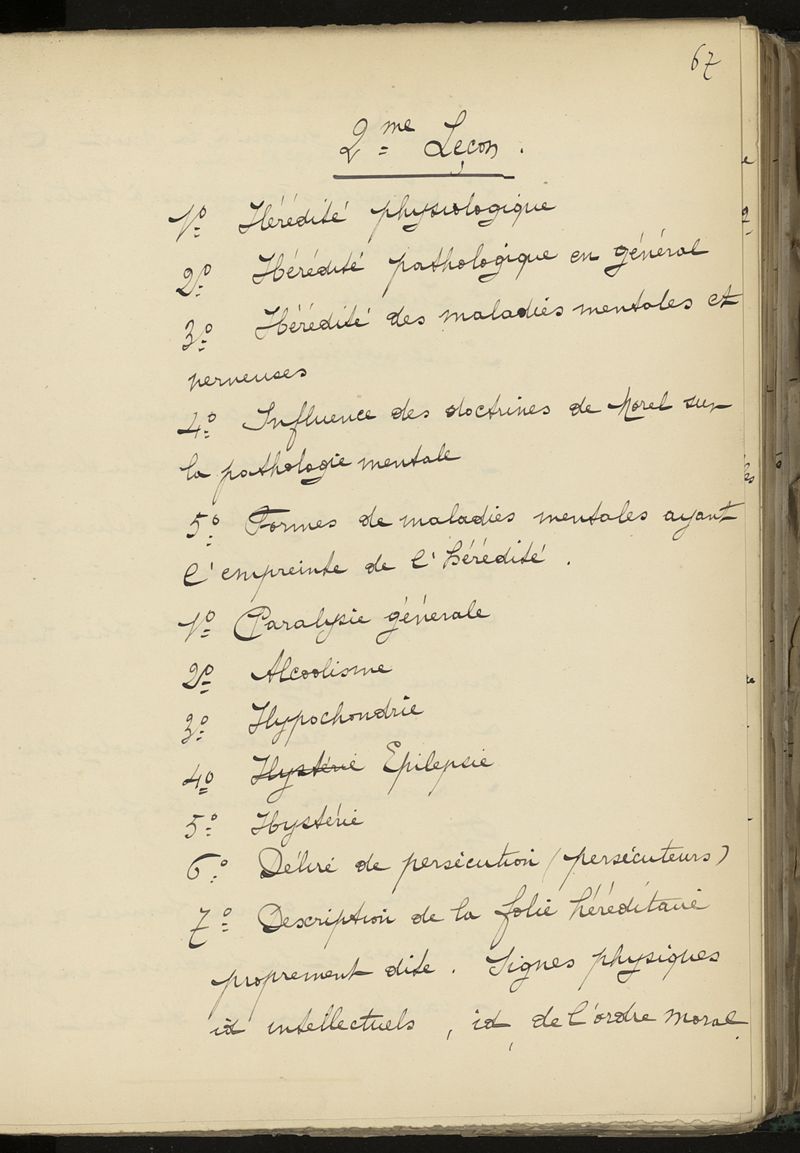 67
2me Leçon.
1º Hérédité physiologique
2º Hérédité pathologique en général
3º Hérédité des maladies mentales et
nerveuses
4º Influence des doctrines de Morel sur
la pathologie mentale
5º Formes de maladies mentales ayant
l'empreinte de l'hérédité.
1º Paralysie générale
2º Alcoolisme
3º Hypochondrie
4º Hystérie Epilepsie
5º Hystérie
6º Délire de persécution (persécuteurs)
7º Description de la folie héréditaire
proprement dite. Signes physiques
id intellectuels, id, de l'ordre moral.